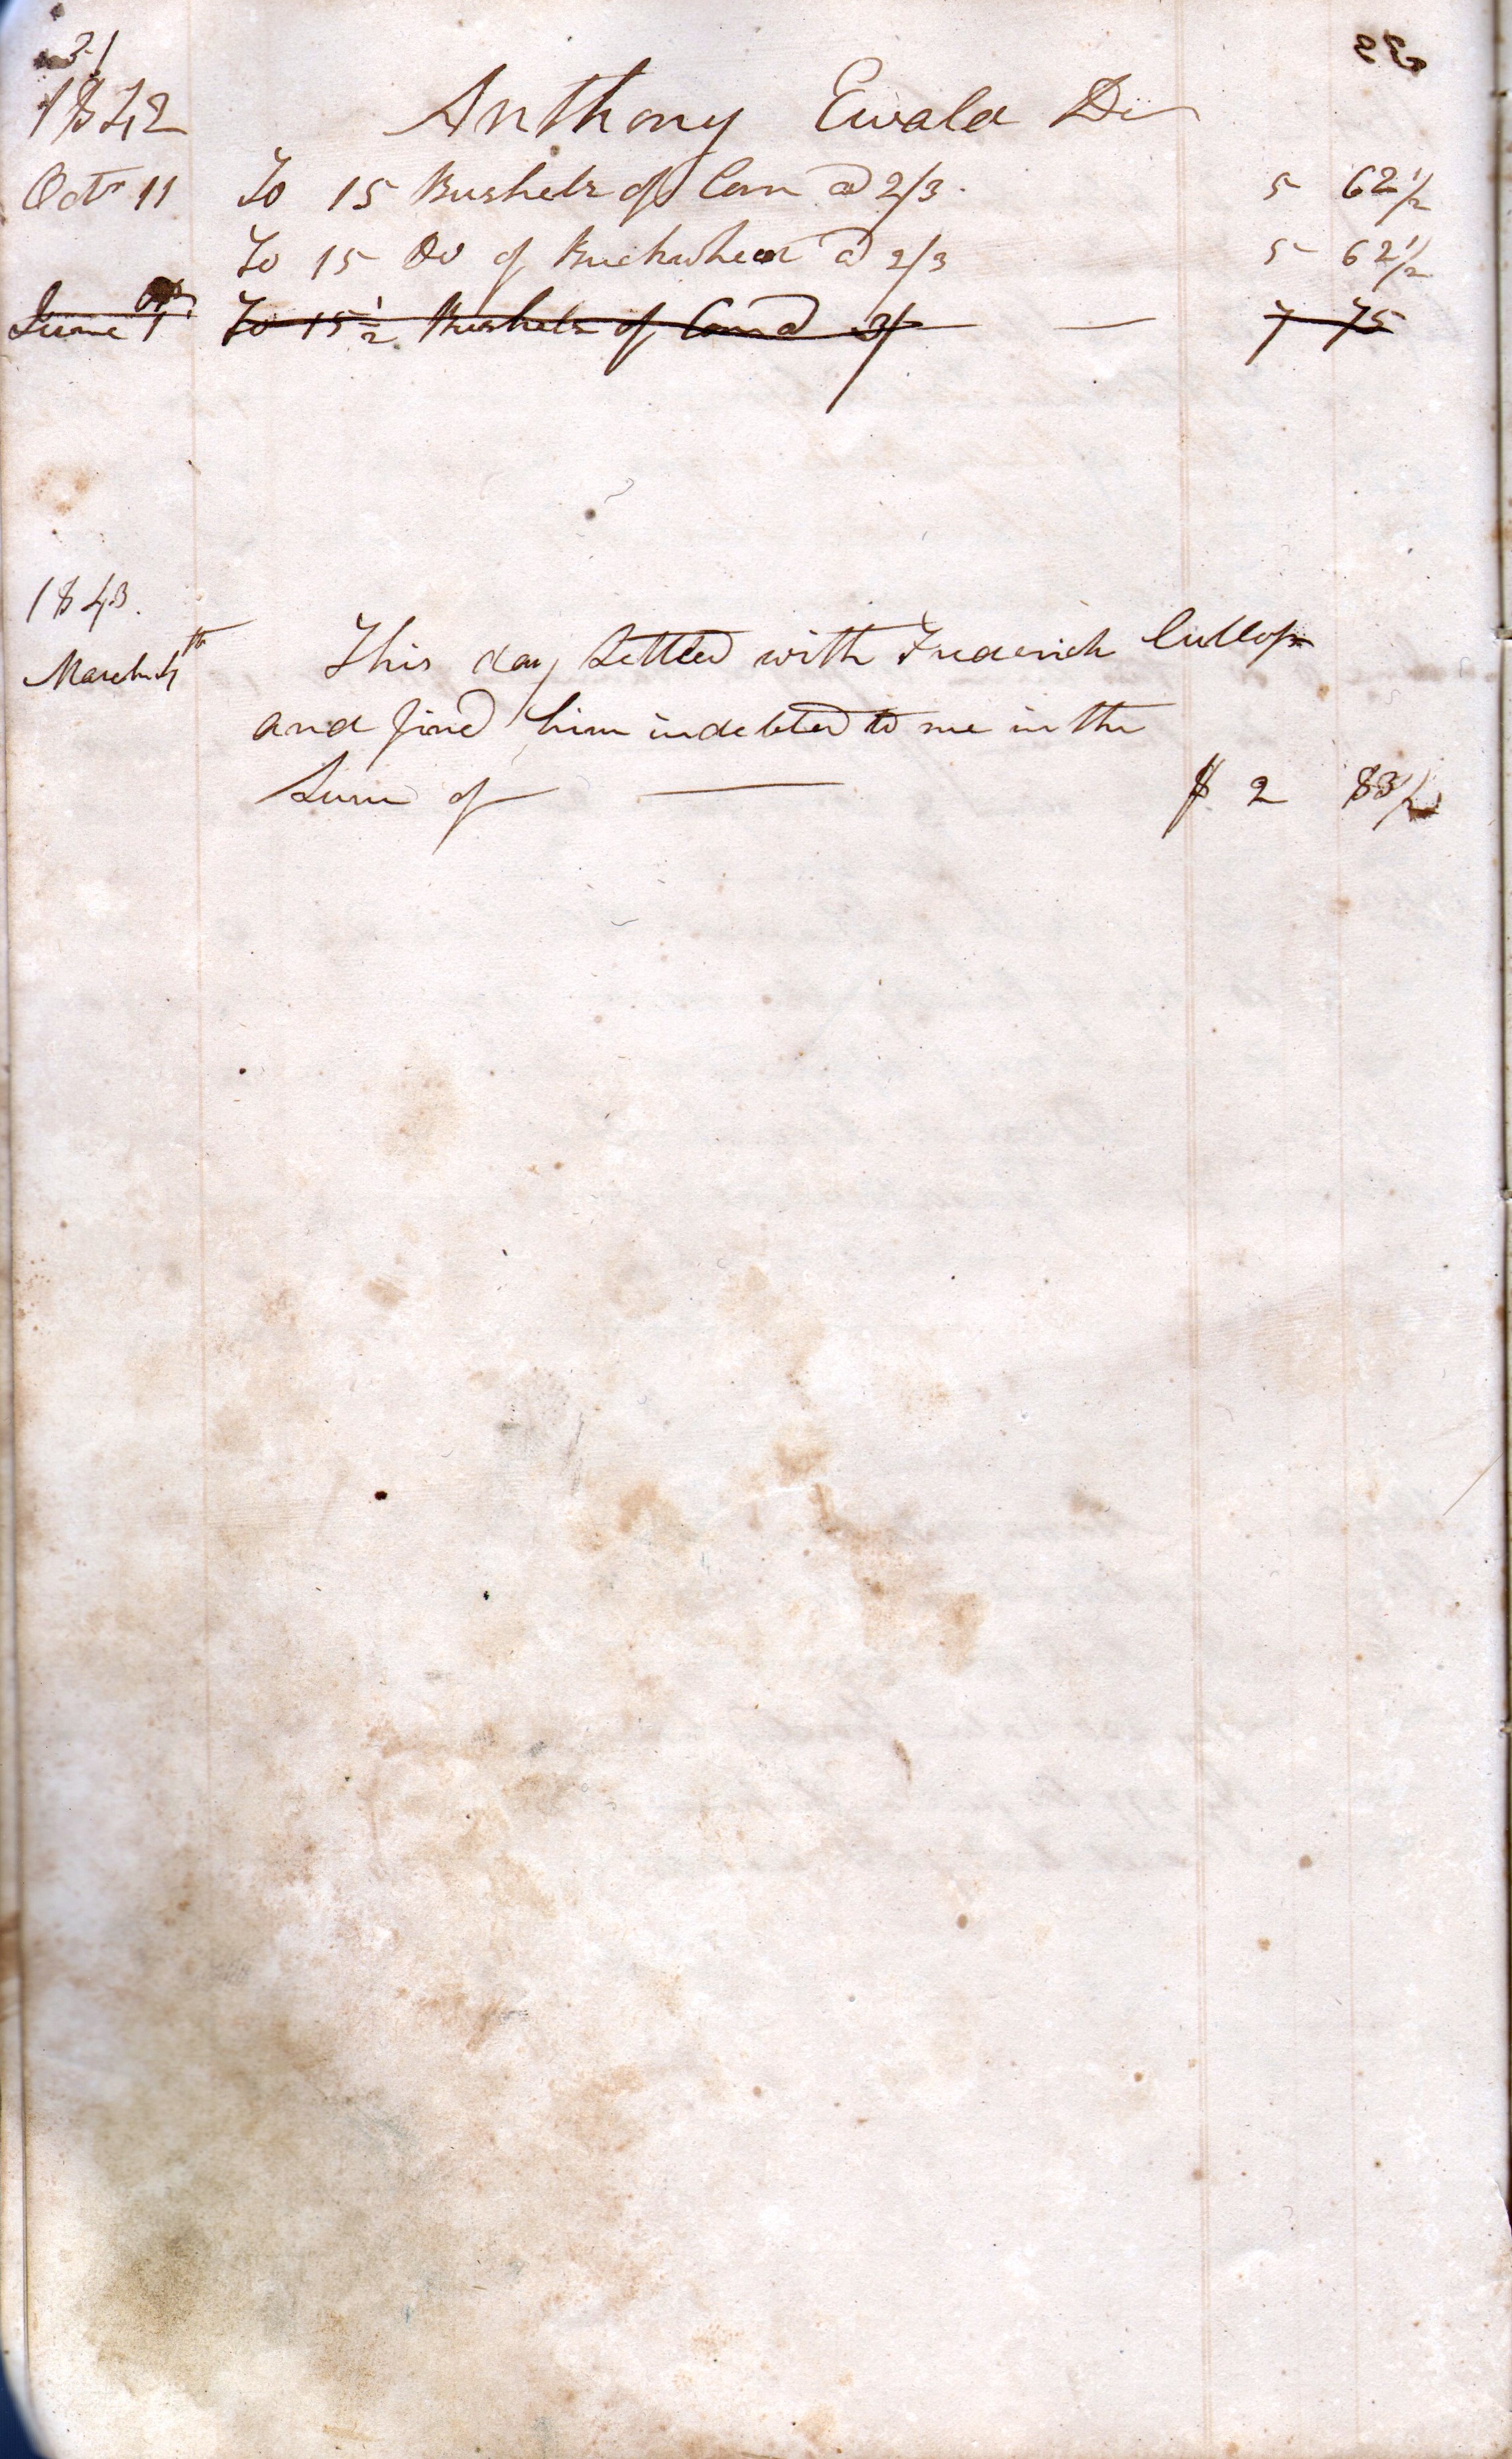 31
1842 Anthony Ewald Dr
Octr 11 To 15 Bushels of Corn @ 2/3. 5 62 1/2
To 15 Do of Buckwheat @ 2/3 5 62 1/2
June 1 To 15 1/2 Bushels of Corn @ 3/ — 7 75
1843.
March 4th This day Settled with Frederick Cullop
and find him indebted to me in the
Sum of — $ 2 83 1/2